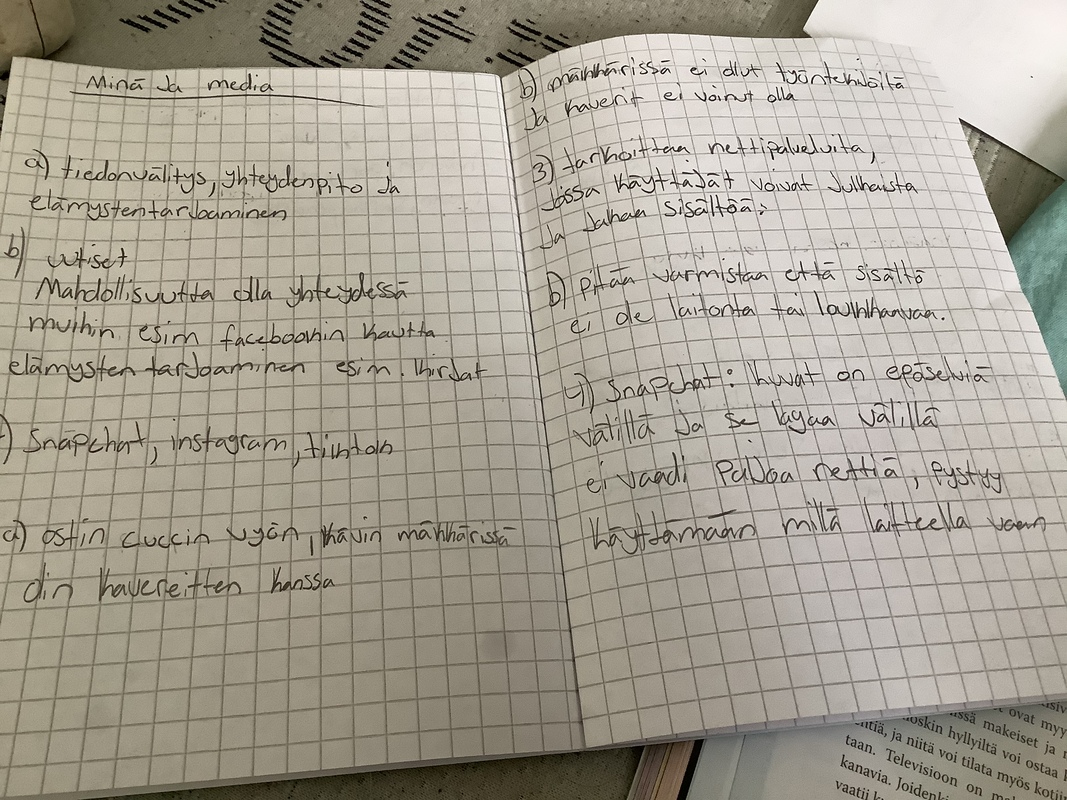 Minä ja media
a) tiedonvälitys, yhteydenpito ja
elämystentarjoaminen
b) uutiset
Mahdollisuutta olla yhteydessä
muihin esim facebookin kautta
elämysten tarjoaminen esim. kirjat
) Snapchat, instagram, tiktok
d) ostin guccin vyön, kävin mäkkärissä
olin kavereitten kanssa
b) mäkkärissä ei ollut työntekijöitä
ja kaverit ei voinut olla
3) tarkoittaa nettipalveluita,
jossa käyttäjät voivat julkaista
ja jakaa sisältöä.
b) pitää varmistaa että sisältö
ei ole laitonta tai loukkaavaa.
4) Snapchat: kuvat on epäselviä
välillä ja se lagaa välillä
ei vaadi paljoa nettiä, pystyy
käyttämään millä laitteella vaan
ovat myy
issä makeiset ja
oskin hyllyiltä voi ostaa
ntiä, ja niitä voi tilata myös kotii
taan. Televisioon on
kanavia. Joidenki
vaatii